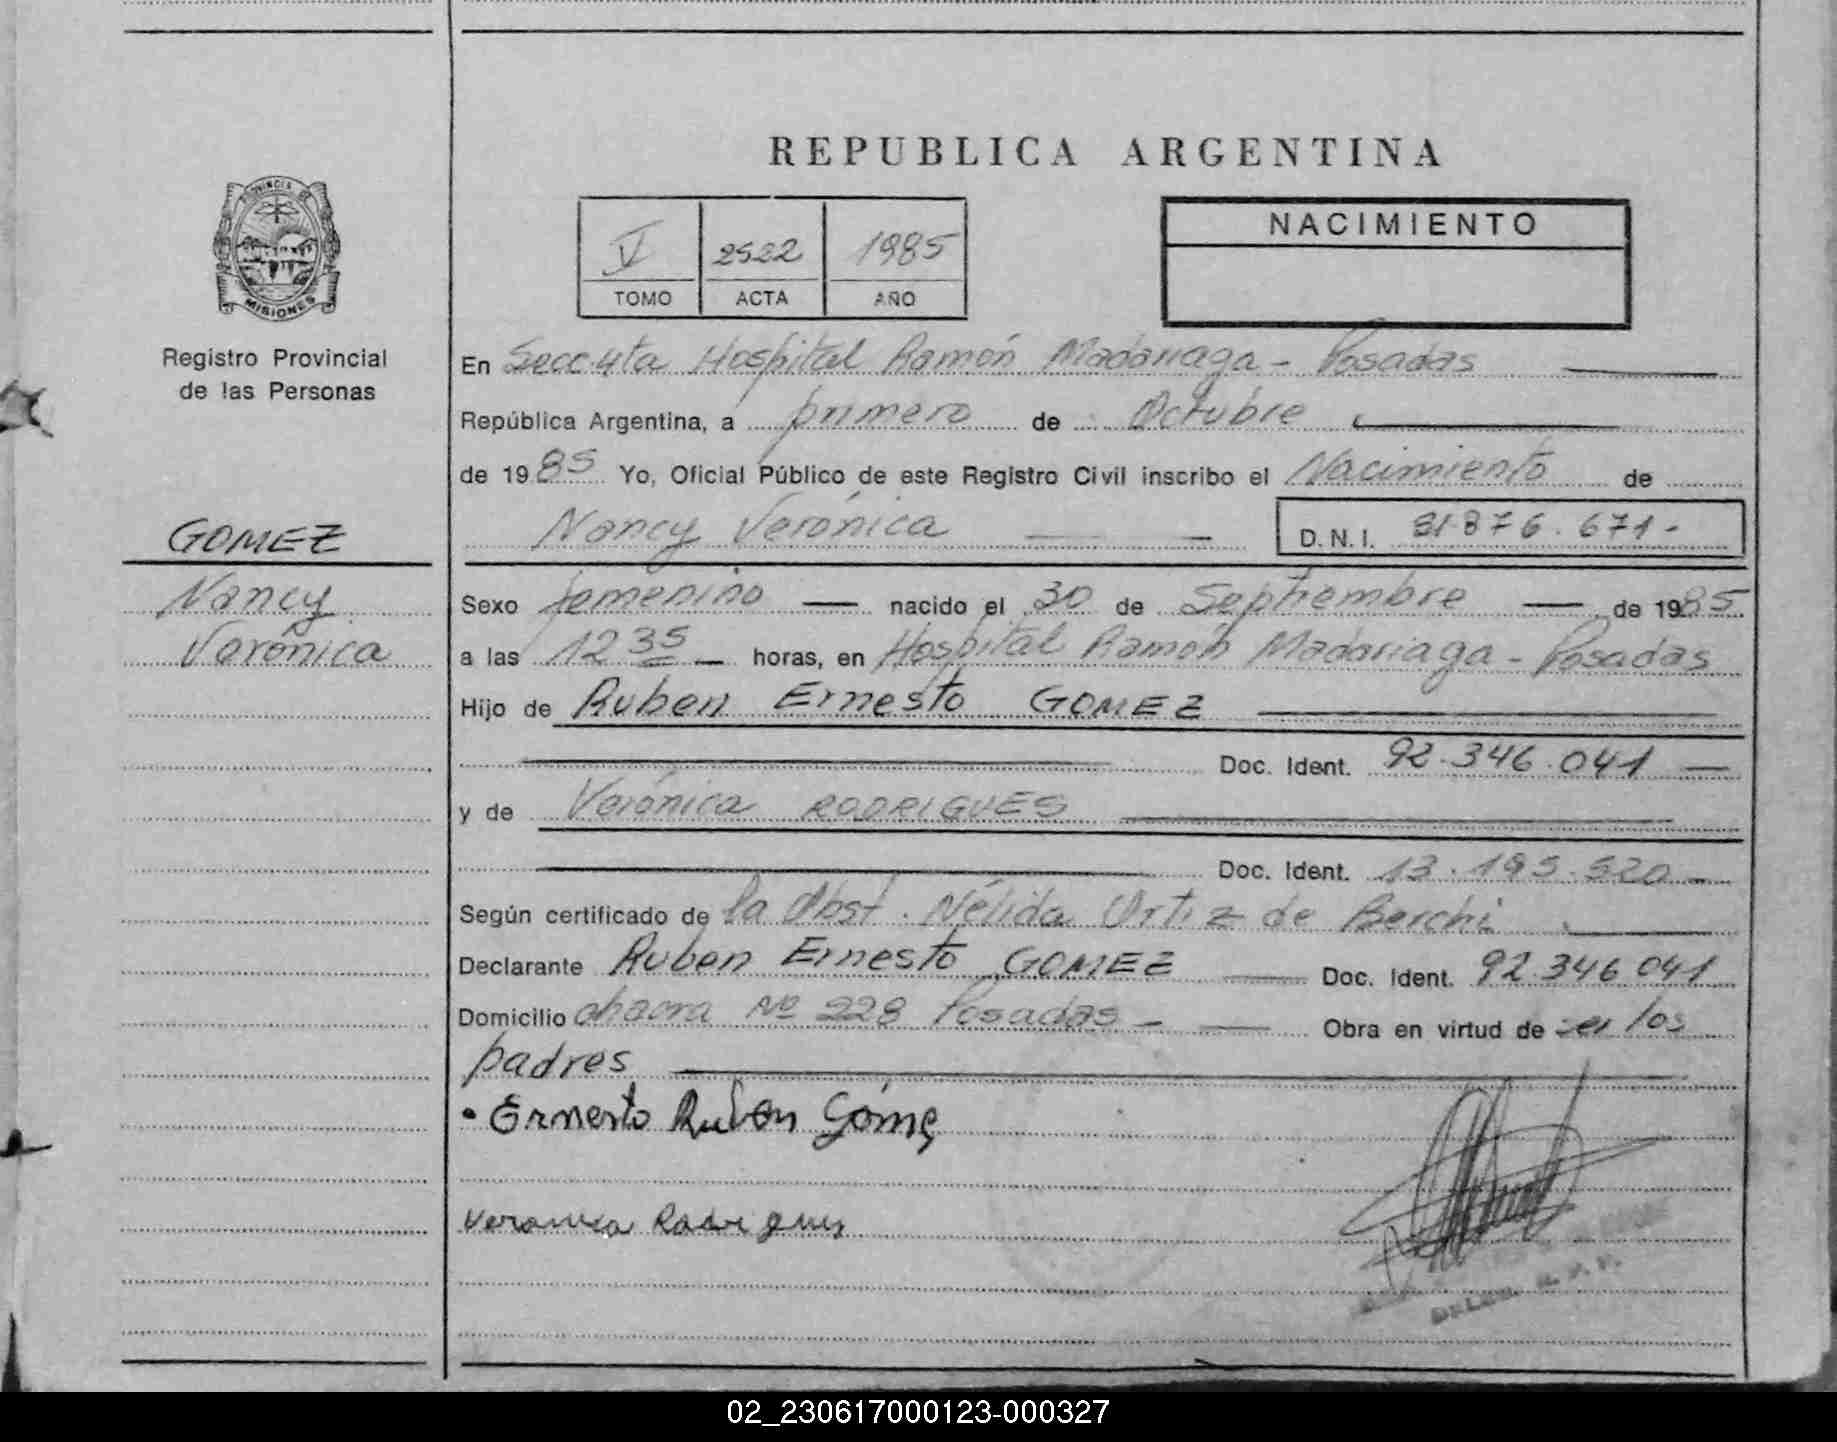 REPUBLICA ARGENTINA
PROVINCIA DE
MISIONES
Registro Provincial
de las Personas
V 2522 1985
TOMO ACTA AÑO
NACIMIENTO
En Secc. 4ta Hospital Ramón Madariaga - Posadas
República Argentina, a primero de Octubre
de 1985 Yo, Oficial Público de este Registro Civil inscribo el Nacimiento de
Nancy Verónica D.N.I. 31.876.671-
GOMEZ
Nancy
Verónica
Sexo femenino — nacido el 30 de Septiembre — de 1985
a las 12 35 — horas, en Hospital Ramón Madariaga - Posadas
Hijo de Ruben Ernesto GOMEZ
Doc. Ident. 92.346.041 —
y de Verónica RODRIGUES
Doc. Ident. 13.195.520 —
Según certificado de la Obst. Nélida Ortiz de Berchi
Declarante Ruben Ernesto GOMEZ — Doc. Ident. 92.346.041
Domicilio chacra Nº 228 Posadas - — Obra en virtud de ser los
padres
Ernesto Ruben Gómez
Veronica Rodrigues
02_230617000123-000327